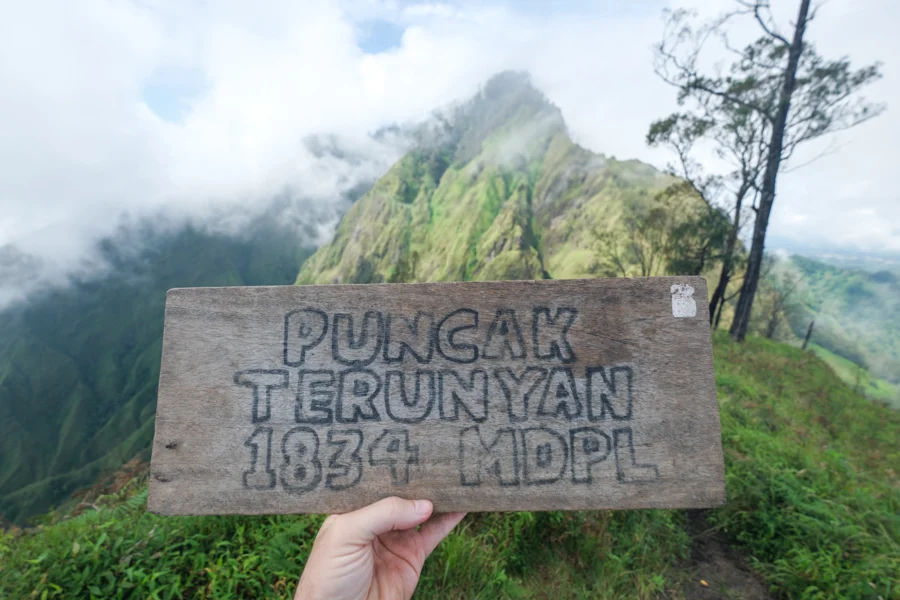 PUNCAK
TERUNYAN
1834 MDPL